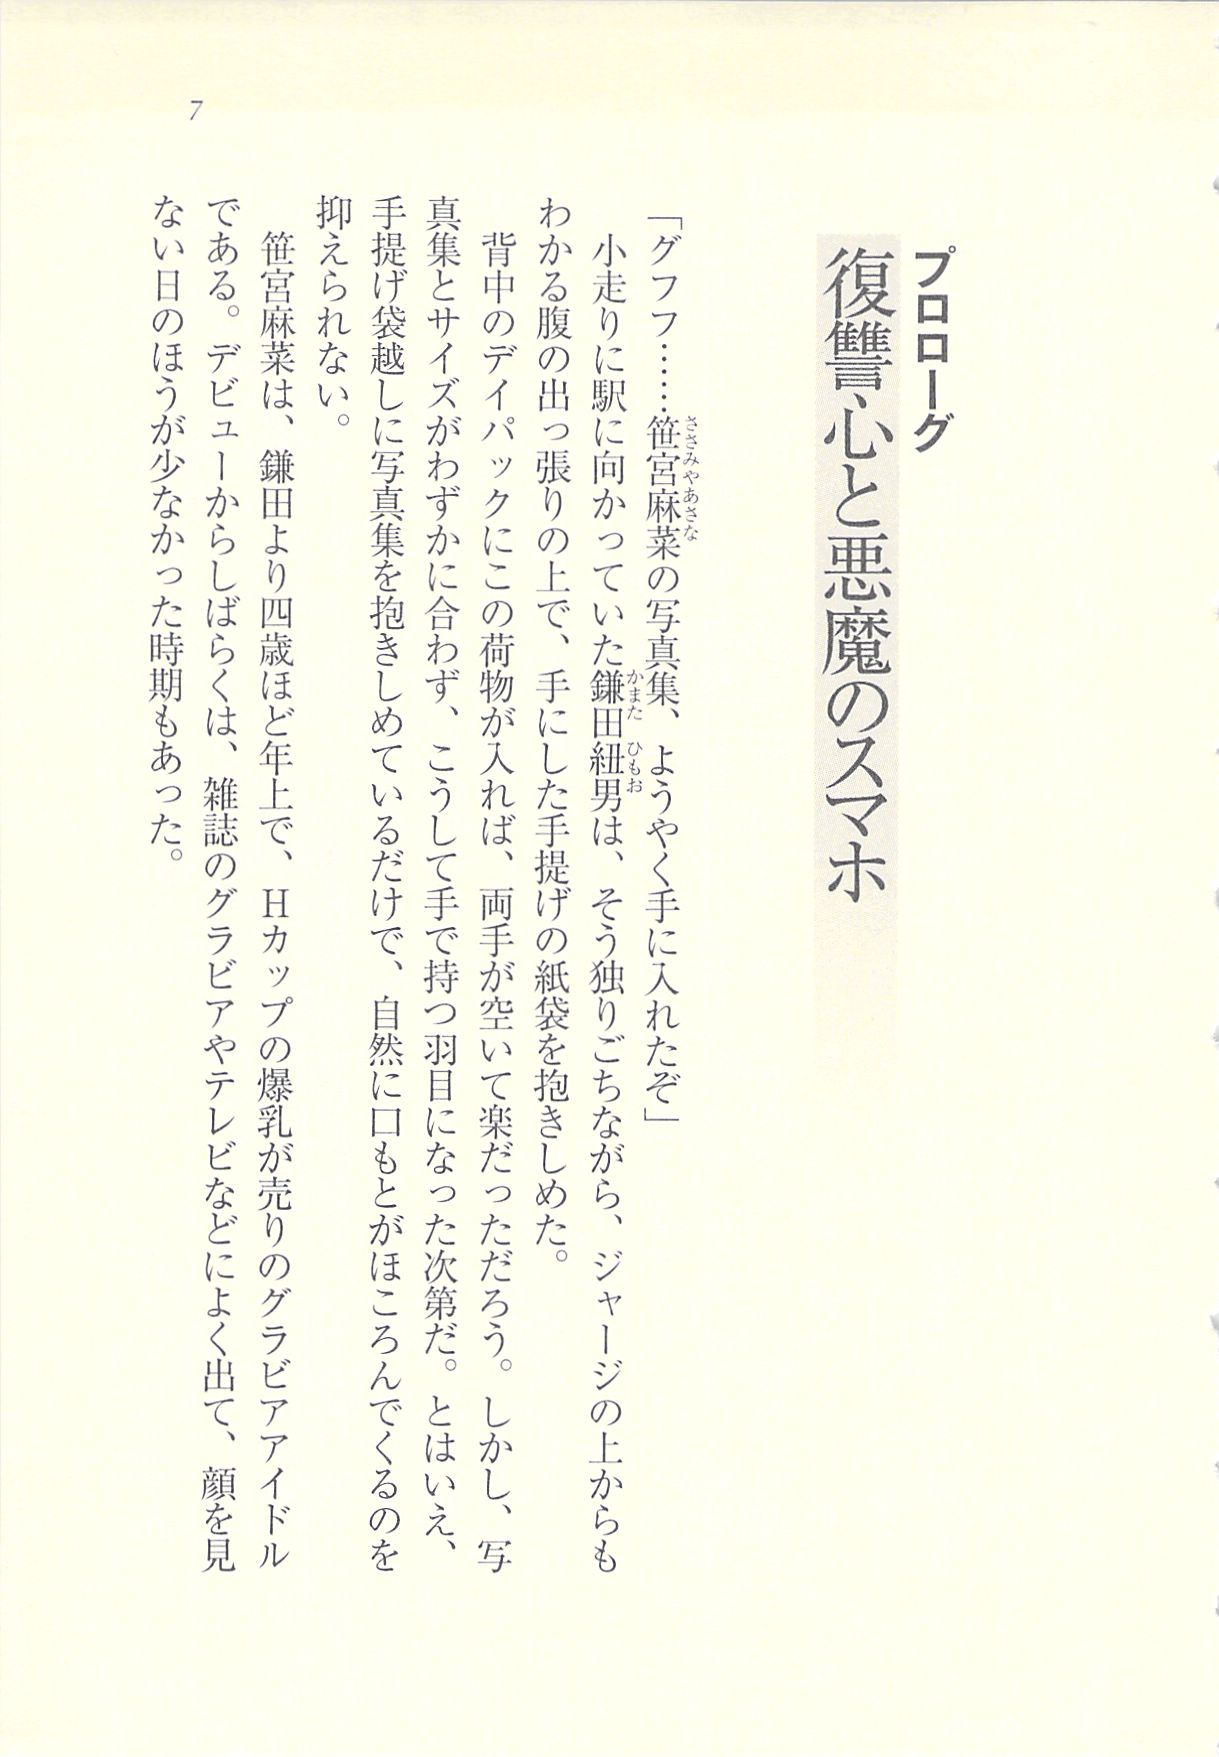 プロローグ
復讐心と悪魔のスマホ
「グフフ……笹宮麻菜の写真集、ようやく手に入れたぞ」
ささみやあさな
小走りに駅に向かっていた鎌田紐男は、そう独りごちながら、ジャージの上からも
かまた ひもお
わかる腹の出っ張りの上で、手にした手提げの紙袋を抱きしめた。
背中のデイパックにこの荷物が入れば、両手が空いて楽だっただろう。しかし、写
真集とサイズがわずかに合わず、こうして手で持つ羽目になった次第だ。とはいえ、
手提げ袋越しに写真集を抱きしめているだけで、自然に口もとがほころんでくるのを
抑えられない。
笹宮麻菜は、鎌田より四歳ほど年上で、Hカップの爆乳が売りのグラビアアイドル
である。デビューからしばらくは、雑誌のグラビアやテレビなどによく出て、顔を見
ない日のほうが少なかった時期もあった。
7